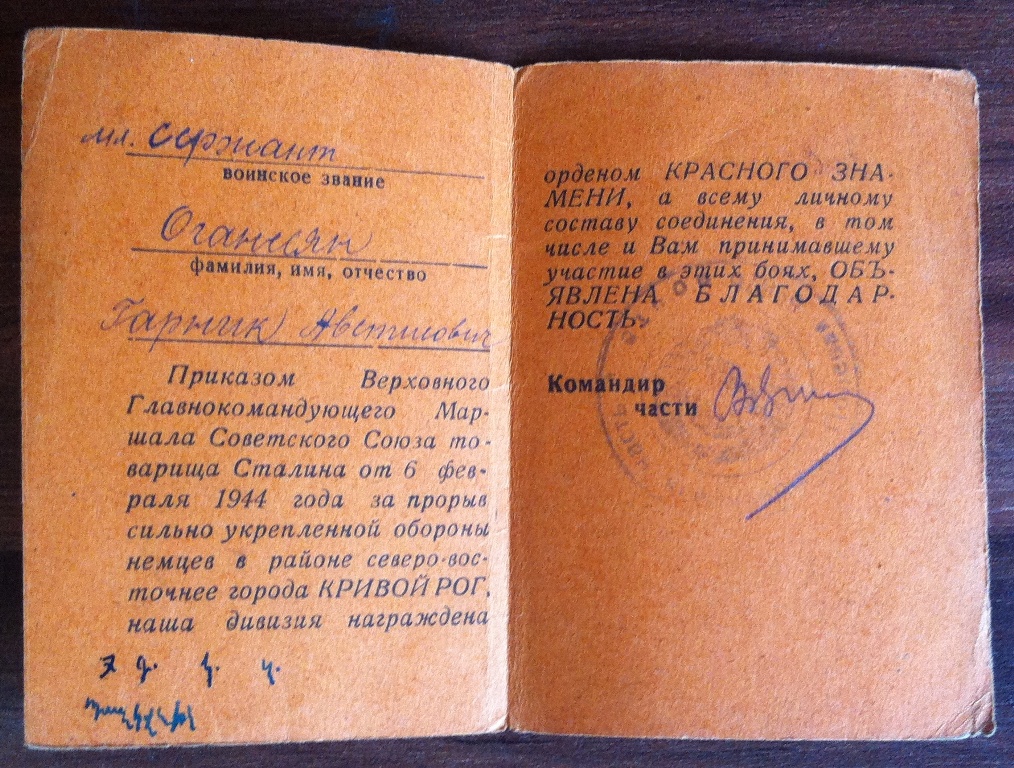 мл. сержант
воинское звание
Оганесян
фамилия, имя, отчество
Гарник Аветисович
Приказом Верховного
Главнокомандующего Мар-
шала Советского Союза то-
варища Сталина от 6 фев-
раля 1944 года за прорыв
сильно укрепленной обороны
немцев в районе северо-вос-
точнее города КРИВОЙ РОГ,
наша дивизия награждена
орденом КРАСНОГО ЗНА-
МЕНИ, а всему личному
составу соединения, в том
числе и Вам принимавшему
участие в этих боях, ОБЪ-
ЯВЛЕНА БЛАГОДАР-
НОСТЬ.
Командир
части